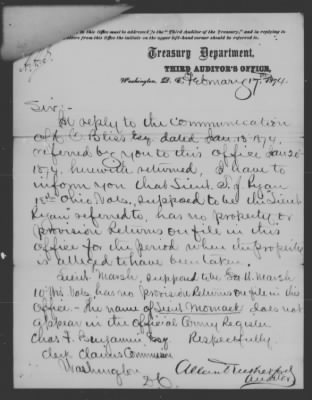 in this office must be addressed to the "Third Auditor of the Treasury," and in replying to
letters from this Office the initials on the upper left-hand corner should be referred to.
Treasury Department,
THIRD AUDITOR'S OFFICE,
Washington, D. C. February 17th 1874.
Sir:-
In reply to the Communication
of A. C. Esq dated Jan 13 1874,
referred by you to this office Jan 20
1874 herewith returned, I have to
inform you that Lieut. S. J. Ryan
18th Ohio Vols, supposed to be the Lieut
Ryan referred to, has no property or
provision Returns on file in this
office for the period when the property
is alleged to have been taken.
Lieut Marsh, supposed to be H. Marsh
10 Vols has no provision Returns on file in this
office - the name of Lieut does not
appear in the Official Army Register
Chas F. Benjamin Esq. Respectfully.
Clerk Claims Commission
Washington
D.C.
Allan Rutherford
Auditor